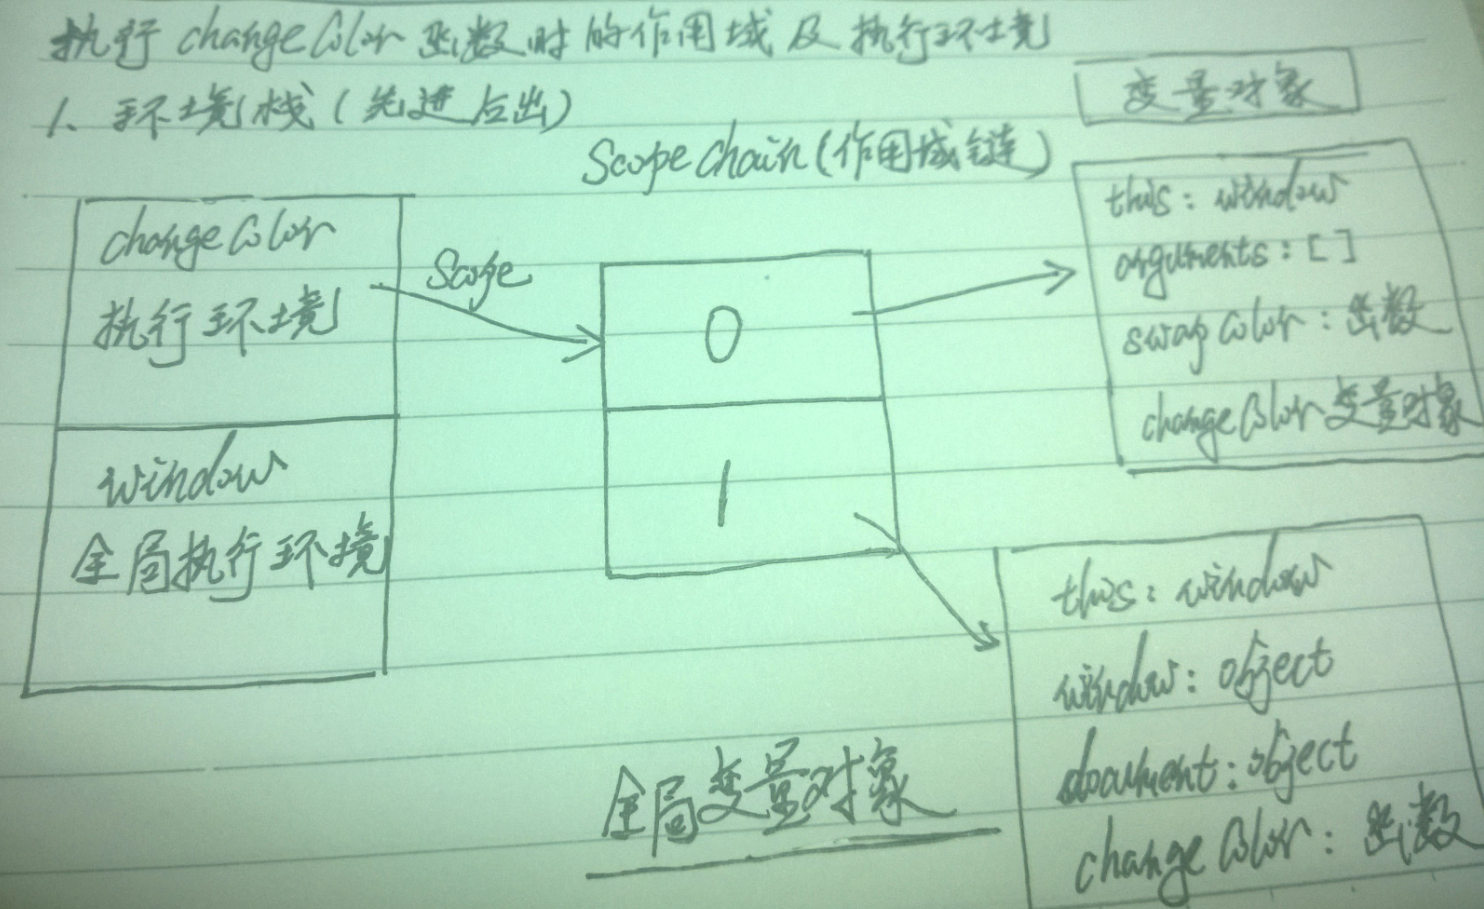 执行changeColor函数时的作用域及执行环境
1、环境栈(先进后出)
变量对象
Scope Chain(作用域链)
changeColor
执行环境
window
全局执行环境
Scope
0
1
this: window
arguments: []
swapColor: 函数
changeColor变量对象
this: window
window: object
document: object
changeColor: 函数
全局变量对象